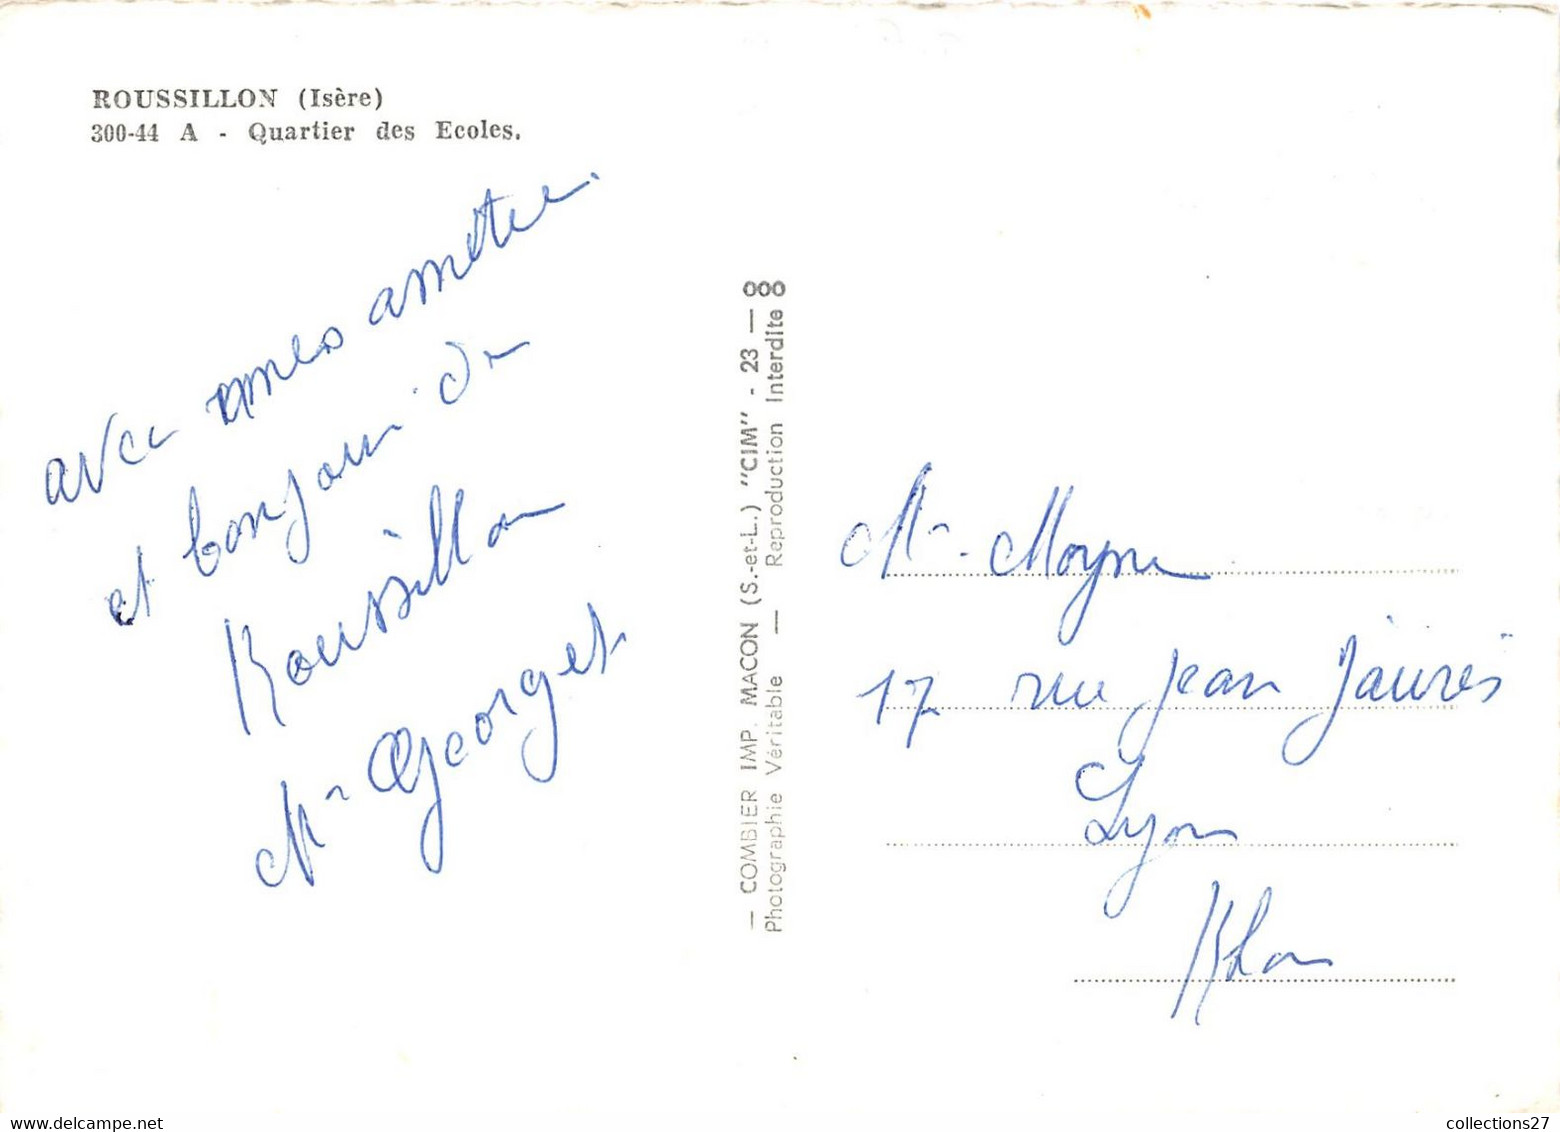 ROUSSILLON (Isère)
300-44 A - Quartier des Ecoles.
avec mes amitié
et bonjour de
Roussillon
Mr Georget
— COMBIER IMP. MACON (S.-et-L.) "CIM" - 23 — 000
Photographie Véritable — Reproduction Interdite 8
Mr. Moyne
17 rue Jean Jaurès
Lyon
Rhon
collections27